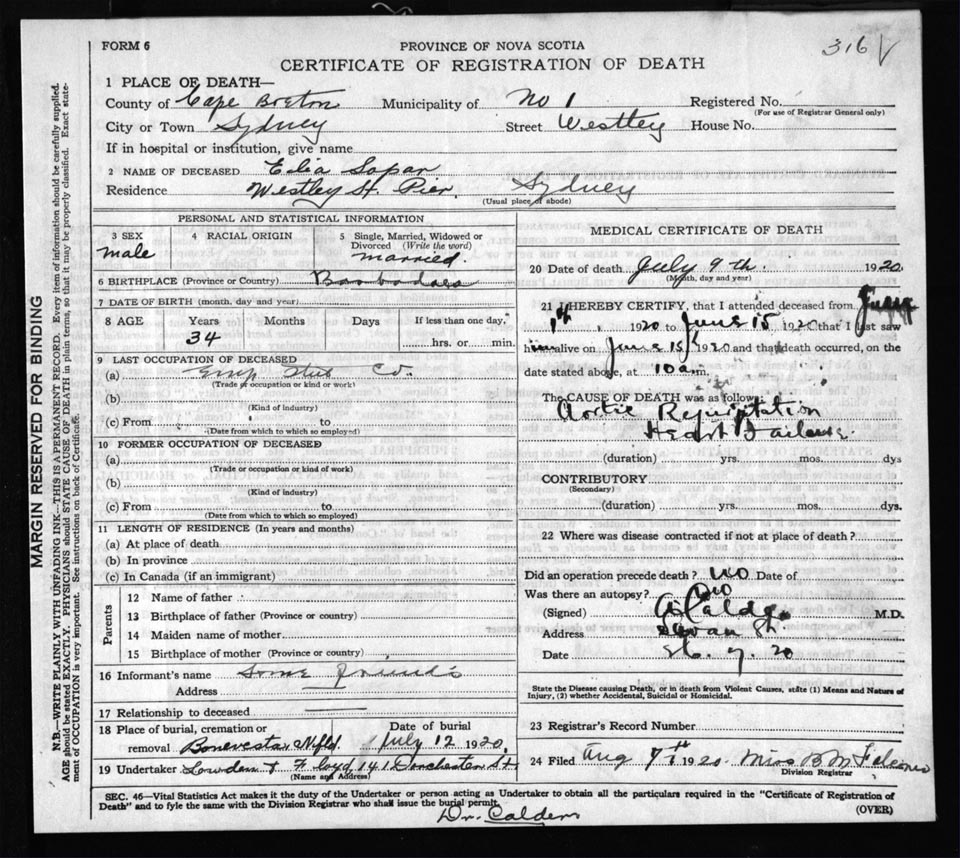 316
FORM 6
PROVINCE OF NOVA SCOTIA
CERTIFICATE OF REGISTRATION OF DEATH
1 PLACE OF DEATH—
County of Cape Breton Municipality of No 1 Registered No.
(For use of Registrar General only)
City or Town Sydney Street Westley House No.
If in hospital or institution, give name
2 NAME OF DECEASED
Residence Westley St. Pier, Sydney
(Usual place of abode)
PERSONAL AND STATISTICAL INFORMATION
3 SEX 4 RACIAL ORIGIN 5 Single, Married, Widowed or
Divorced (Write the word)
male married.
6 BIRTHPLACE (Province or Country) Barbados
7 DATE OF BIRTH (month, day and year)
8 AGE Years Months Days If less than one day,
34 hrs. or min.
9 LAST OCCUPATION OF DECEASED
(a) Co.
(Trade or occupation or kind or work)
(b)
(Kind of industry)
(c) From to
(Date from which to which so employed)
10 FORMER OCCUPATION OF DECEASED
(a)
(Trade or occupation or kind of work)
(b)
(Kind of industry)
(c) From to
(Date from which to which so employed)
11 LENGTH OF RESIDENCE (In years and months)
(a) At place of death
(b) In province
(c) In Canada (if an immigrant)
Parents
12 Name of father
13 Birthplace of father (Province or country)
14 Maiden name of mother
15 Birthplace of mother (Province or country)
16 Informant's name Some friends
Address
17 Relationship to deceased
18 Place of burial, cremation or Date of burial
removal Nfld. July 12 1920.
19 Undertaker Lowden & Floyd 141 Dorchester St.
(Name and Address)
MEDICAL CERTIFICATE OF DEATH
20 Date of death July 9th. 1920
(Month, day and year)
21 I HEREBY CERTIFY, that I attended deceased from
1st 1920 to June 15 1920 that I last saw
him alive on June 15th 1920 and that death occurred, on the
date stated above, at 10 a.m.
The CAUSE OF DEATH was as follows:
Aortic Regurgitation
Heart Failure.
(duration) yrs. mos. dys
CONTRIBUTORY
(Secondary)
(duration) yrs. mos. dys.
22 Where was disease contracted if not at place of death?
Did an operation precede death? No Date of
Was there an autopsy? No
(Signed) Calder M.D.
Address
Date 20
State the Disease causing Death, or in death from Violent Causes, state (1) Means and Nature of
Injury, (2) whether Accidental, Suicidal or Homicidal.
23 Registrar's Record Number
24 Filed Aug 7th 1920 Miss B M
Division Registrar
SEC. 46—Vital Statistics Act makes it the duty of the Undertaker or person acting as Undertaker to obtain all the particulars required in the "Certificate of Registration of
Death" and to fyle the same with the Division Registrar who shall issue the burial permit.
(OVER)
Dr. Calder
MARGIN RESERVED FOR BINDING
N.B.—WRITE PLAINLY WITH UNFADING INK—THIS IS A PERMANENT RECORD. Every item of information should be carefully supplied.
AGE should be stated EXACTLY. PHYSICIANS should STATE CAUSE OF DEATH in plain terms, so that it may be properly classified. Exact state-
ment of OCCUPATION is very important. See instructions on back of Certificate.